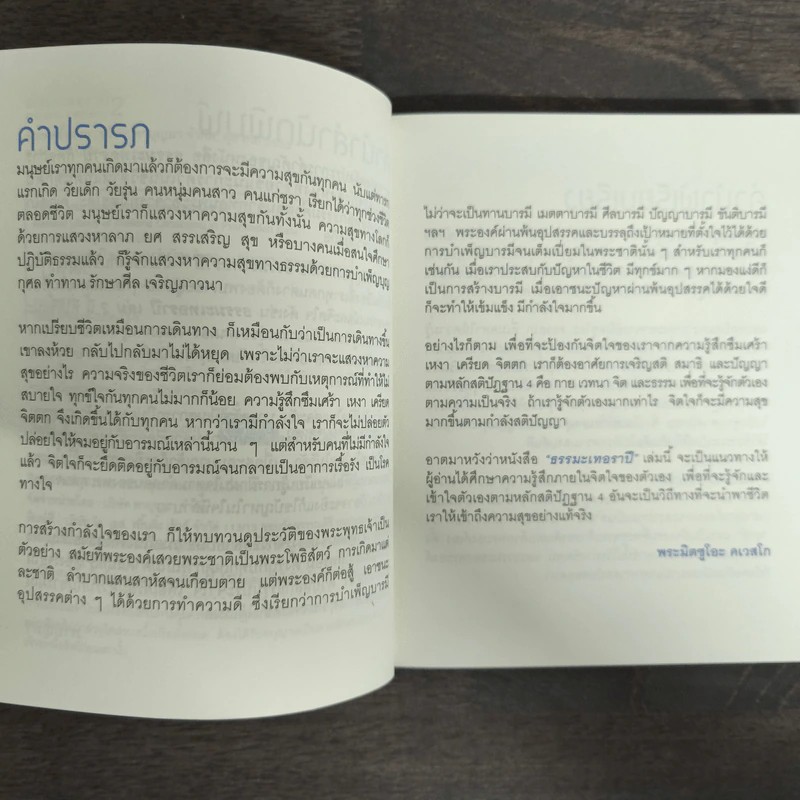 คำปรารภ
มนุษย์เราทุกคนเกิดมาแล้วก็ต้องการจะมีความสุขกันทุกคน นับแต่ทารก
แรกเกิด วัยเด็ก วัยรุ่น คนหนุ่มคนสาว คนแก่ชรา เรียกได้ว่าทุกช่วงชีวิต
ตลอดชีวิต มนุษย์เราก็แสวงหาความสุขกันทั้งนั้น ความสุขทางโลกก็
ด้วยการแสวงหาลาภ ยศ สรรเสริญ สุข หรือบางคนเมื่อสนใจศึกษา
ปฏิบัติธรรมแล้ว ก็รู้จักแสวงหาความสุขทางธรรมด้วยการบำเพ็ญบุญ
กุศล ทำทาน รักษาศีล เจริญภาวนา
หากเปรียบชีวิตเหมือนการเดินทาง ก็เหมือนกับว่าเป็นการเดินทางขึ้น
เขาลงห้วย กลับไปกลับมาไม่ได้หยุด เพราะไม่ว่าเราจะแสวงหาความ
สุขอย่างไร ความจริงของชีวิตเราก็ย่อมต้องพบกับเหตุการณ์ที่ทำให้ไม่
สบายใจ ทุกข์ใจกันทุกคนไม่มากก็น้อย ความรู้สึกซึมเศร้า เหงา เครียด
จิตตก จึงเกิดขึ้นได้กับทุกคน หากว่าเรามีกำลังใจ เราก็จะไม่ปล่อยตัว
ปล่อยใจให้จมอยู่กับอารมณ์เหล่านี้นาน ๆ แต่สำหรับคนที่ไม่มีกำลังใจ
แล้ว จิตใจก็จะยึดติดอยู่กับอารมณ์จนกลายเป็นอาการเรื้อรัง เป็นโรค
ทางใจ
การสร้างกำลังใจของเรา ก็ให้ทบทวนดูประวัติของพระพุทธเจ้าเป็น
ตัวอย่าง สมัยที่พระองค์เสวยพระชาติเป็นพระโพธิสัตว์ การเกิดมาแต่
ละชาติ ลำบากแสนสาหัสจนเกือบตาย แต่พระองค์ก็ต่อสู้ เอาชนะ
อุปสรรคต่าง ๆ ได้ด้วยการทำความดี ซึ่งเรียกว่าการบำเพ็ญบารมี
ไม่ว่าจะเป็นทานบารมี เมตตาบารมี ศีลบารมี ปัญญาบารมี ขันติบารมี
ฯลฯ พระองค์ผ่านพ้นอุปสรรคและบรรลุถึงเป้าหมายที่ตั้งใจไว้ได้ด้วย
การบำเพ็ญบารมีจนเต็มเปี่ยมในพระชาตินั้น ๆ สำหรับเราทุกคนก็
เช่นกัน เมื่อเราประสบกับปัญหาในชีวิต มีทุกข์มาก ๆ หากมองแง่ดีก็
เป็นการสร้างบารมี เมื่อเอาชนะปัญหาผ่านพ้นอุปสรรคได้ด้วยใจดี
ก็จะทำให้เข้มแข็ง มีกำลังใจมากขึ้น
อย่างไรก็ตาม เพื่อที่จะป้องกันจิตใจของเราจากความรู้สึกซึมเศร้า
เหงา เครียด จิตตก เราก็ต้องอาศัยการเจริญสติ สมาธิ และปัญญา
ตามหลักสติปัฏฐาน 4 คือ กาย เวทนา จิต และธรรม เพื่อที่จะรู้จักตัวเอง
ตามความเป็นจริง ถ้าเรารู้จักตัวเองมากเท่าไร จิตใจก็จะมีความสุข
มากขึ้นตามกำลังสติปัญญา
อาตมาหวังว่าหนังสือ "ธรรมะเทอราปี" เล่มนี้ จะเป็นแนวทางให้
ผู้อ่านได้ศึกษาความรู้สึกภายในจิตใจของตัวเอง เพื่อที่จะรู้จักและ
เข้าใจตัวเองตามหลักสติปัฏฐาน 4 อันจะเป็นวิถีทางที่จะนำพาชีวิต
เราให้เข้าถึงความสุขอย่างแท้จริง
พระมิตซูโอะ คเวสโก